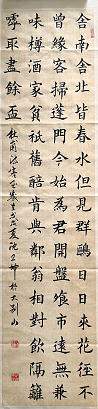 舍南舍北皆春水但見群鷗日日來花徑不
曾緣客掃蓬門今始為君開盤飧市遠無兼
味樽酒家貧祇舊醅肯與鄰翁相對飲隔籬
呼取盡餘盃 杜甫詩客至